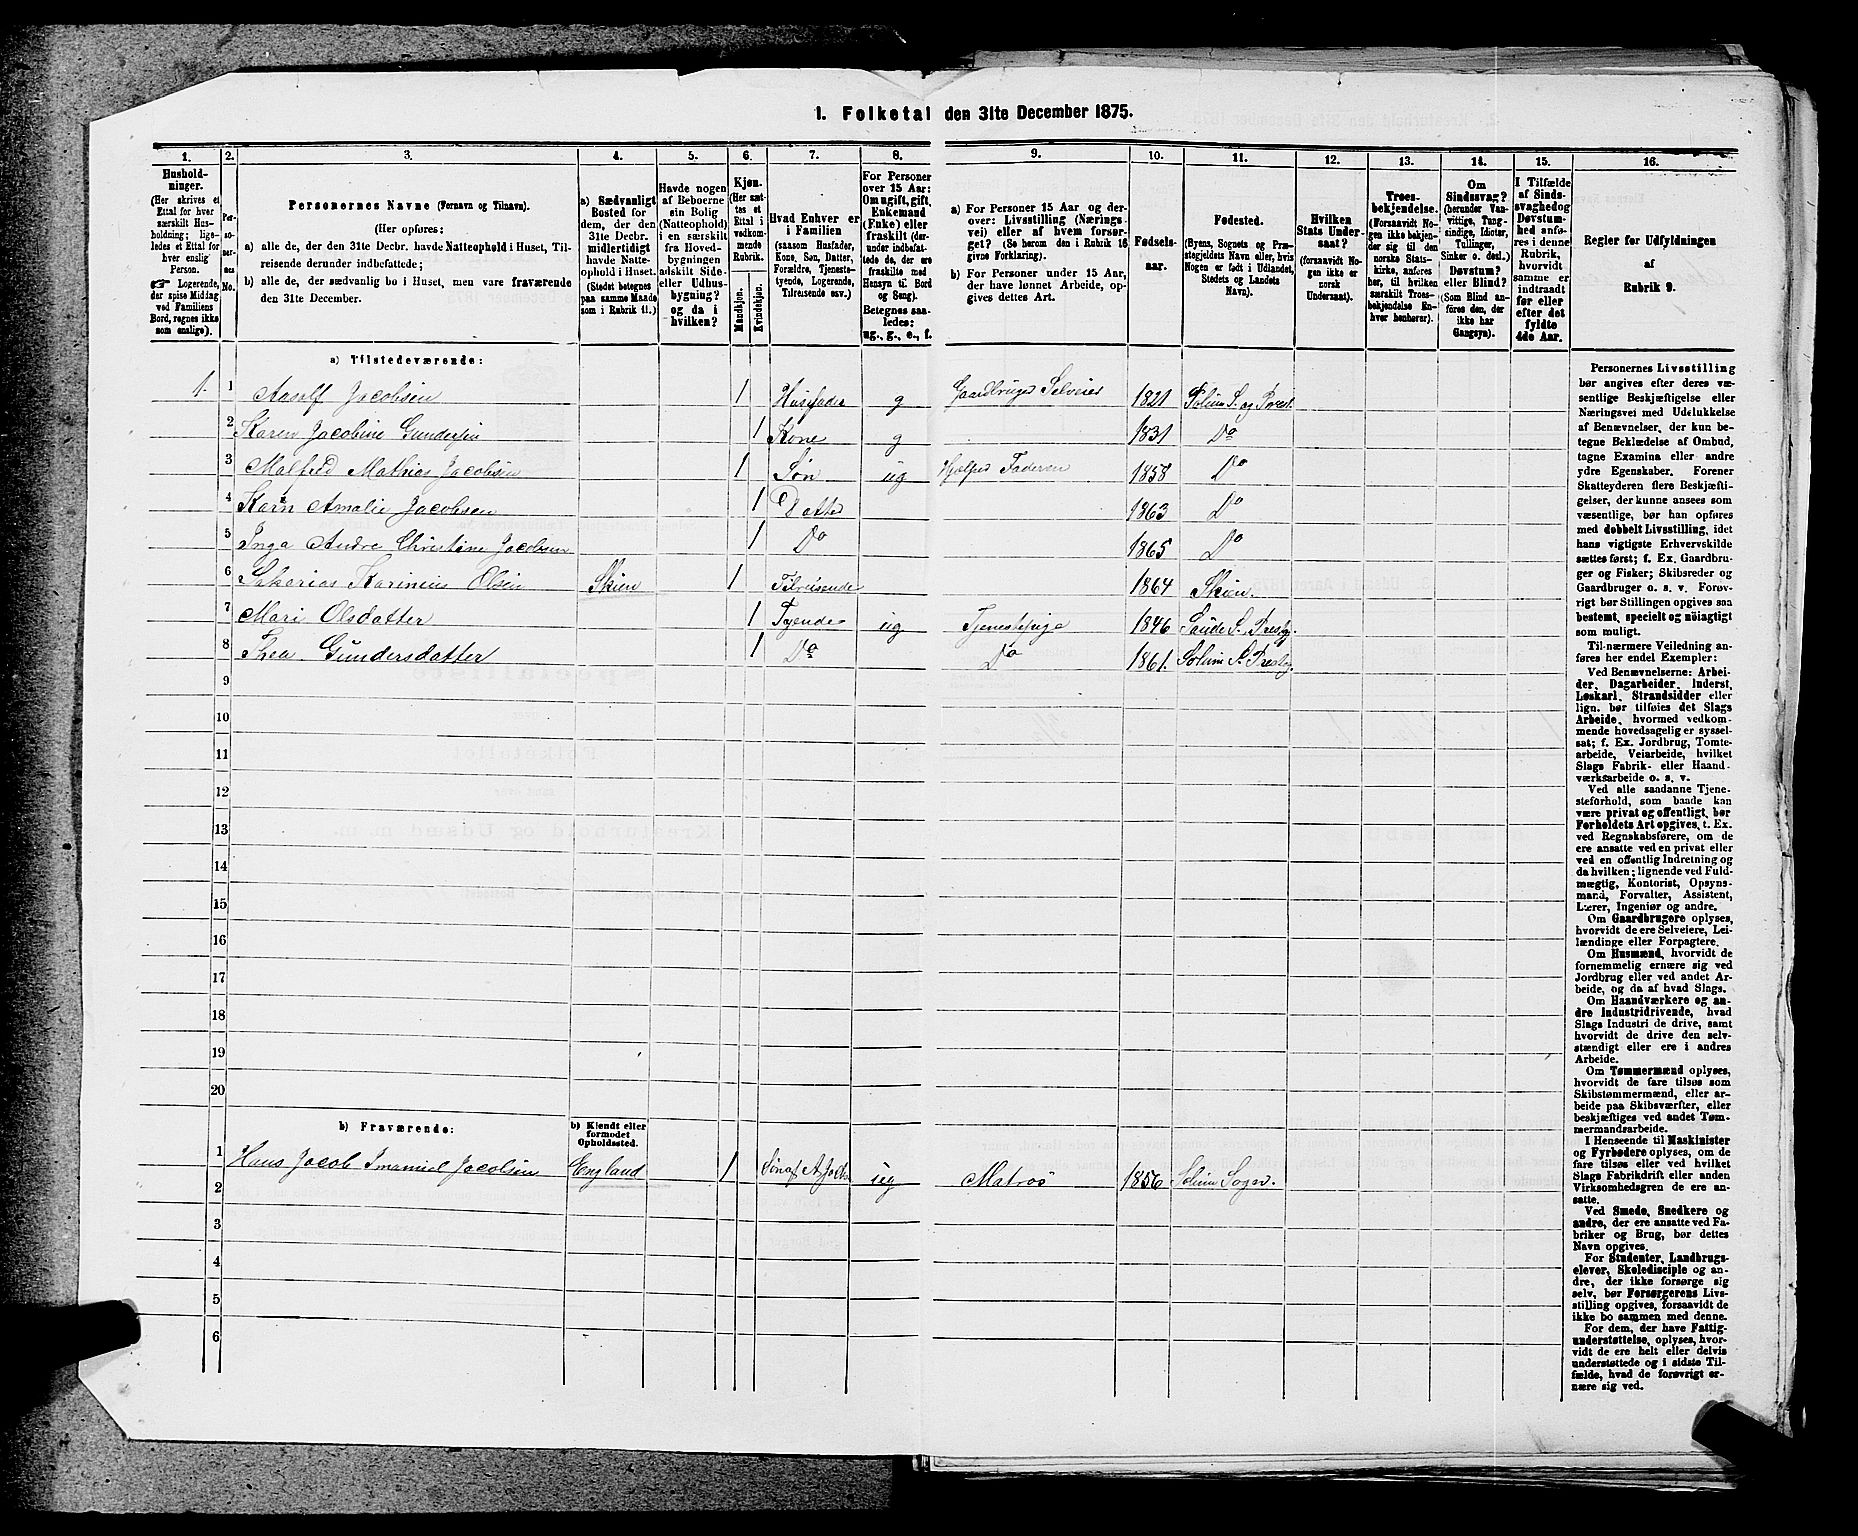 1. Folketal den 31te December 1875.
1. 2. 3. 4. 5. 6. 7. 8. 9. 10. 11. 12. 13. 14. 15. 16.
Hushold-
ninger.
(Her skrives et
Ettal for hver
særskilt Hus-
holdning; lige-
ledes et Ettal for
hver enslig
Person.
☞ Logerende,
der spise Middag
ved Familiens
Bord, regnes ikke
som enslige).
Per-
so-
ner-
nes
No.
Personernes Navne (Fornavn og Tilnavn).
(Her opføres:
a) alle de, der den 31te Decbr. havde Natteophold i Huset, Til-
reisende derunder indbefattede;
b) alle de, der sædvanlig bo i Huset, men vare fraværende
den 31te December.
a) Sædvanligt
Bosted for
dem, der den
31te Decbr.
midlertidigt
havde Natte-
ophold i Huset.
(Stedet betegnes
paa samme Maade
som i Rubrik 11.)
Havde nogen
af Beboerne
sin Bolig
(Natteophold)
i en særskilt
fra Hoved-
bygningen
adskilt Side-
eller Udhus-
bygning?
og da i
hvilken?
Kjøn.
(Her sæt-
tes et
Ettal i
vedkom-
mende
Rubrik.
Mandkjøn.
Kvindekjøn.
Hvad Enhver er
i Familien
(saasom Husfader,
Kone, Søn, Datter,
Forældre, Tjeneste-
tyende, Logerende,
Tilreisende osv.)
For Personer
over 15 Aar:
Om ugift, gift,
Enkemand
(Enke) eller
fraskilt (der-
under indbefat-
tede de, der ere
fraskilte med
Hensyn til Bord
og Seng).
Betegnes saa-
ledes:
ug., g., e., f.
a) For Personer 15 Aar og der-
over: Livsstilling (Nærings-
vei) eller af hvem forsør-
get? (Se herom den i Rubrik 16
givne Forklaring).
b) For Personer under 15 Aar,
der have lønnet Arbeide, op-
gives dettes Art.
Fødsels-
aar.
Fødested.
(Byens, Sognets og Præ-
stegjeldets Navn eller, hvis
Nogen er født i Udlandet,
Stedets og Landets
Navn).
Hvilken
Stats Under-
saat?
(forsaavidt No-
gen ikke er
norsk
Undersaat).
Troes-
bekjendelse.
(Forsaavidt No-
gen ikke bekjen-
der sig til den
norske Stats-
kirke, anføres
her, til hvilken
særskilt Troes-
bekjendelse En-
hver henhører).
Om
Sindssvag?
(herunder Van-
vittige, Tung-
sindige, Idioter,
Tullinger,
Sinker o. desl.).
Døvstum?
eller Blind?
(Som Blind an-
føres den, der
ikke har
Gangsyn).
I Tilfælde
af Sinds-
svaghed og
Døvstum-
hed anfø-
res i denne
Rubrik,
hvorvidt
samme er
indtraadt
før eller
efter det
fyldte
4de Aar.
Regler for Udfyldningen
af
Rubrik 9.
a) Tilstedeværende:
1. 1 Aadolf Jacobsen 1 Husfader g Gaardbruger Selveier 1821 Solum S. og Prest.
2 Karen Jacobine Gundersen 1 Kone g 1831 Do
3 Malfred Mathias Jacobsen 1 Søn ug Hjelper Faderen 1858 Do
4 Karn Amalie Jacobsen 1 Datter 1863 Do
5 Inga Andre Christine Jacobsen 1 Do 1865 Do
6 Sakarias Karinius Olsen Skien 1 Tilreisende 1864 Skien.
7 Mari Olsdatter 1 Tyende ug Tjenestepige 1846 Saude S. Prestg.
8 Thea Gundersdatter 1 Do Do 1861. Solum S. Prestg.
9
10
11
12
13
14
15
16
17
18
19
20
b) Fraværende:
b) Kjendt eller
formodet
Opholdssted.
1 Hans Jacob Imanuel Jacobsen England 1 Søn af A. Jacobs. ug Matros 1856 Solum Sogn.
2
3
4
5
6
Personernes Livsstilling
bør angives efter deres væ-
sentlige Beskjæftigelse eller
Næringsvei med Udelukkelse
af Benævnelser, der kun be-
tegne Beklædelse af Ombud,
tagne Examina eller andre
ydre Egenskaber. Forener
Skatteyderen flere Beskjæfti-
gelser, der kunne ansees som
væsentlige, bør han opføres
med dobbelt Livsstilling, idet
hans vigtigste Erhvervskilde
sættes først; f. Ex. Gaardbru-
ger og Fisker; Skibsreder og
Gaardbruger o. s. v. Forøv-
rigt bør Stillingen opgives saa
bestemt, specielt og nøiagtigt
som muligt.
Til nærmere Veiledning an-
føres her endel Exempler:
Ved Benævnelserne: Arbei-
der, Dagarbeider, Inderst,
Løskarl, Strandsidder eller
lign. bør tilføies det Slags
Arbeide, hvormed vedkom-
mende hovedsagelig er syssel-
sat; f. Ex. Jordbrug, Tomte-
arbeide, Veiarbeide, hvilket
Slags Fabrik- eller Haand-
værksarbeide o. s. v.
Ved alle saadanne Tjene-
steforhold, som baade kan
være privat og offentligt, bør
Forholdets Art opgives, t. Ex.
ved Regnskabsførere, om de
ere ansatte ved en privat eller
ved en offentlig Indretning og
da hvilken; lignende ved Fuld-
mægtig, Kontorist, Opsyns-
mand, Forvalter, Assistent,
Lærer, Ingeniør og andre.
Om Gaardbrugere oplyses,
hvorvidt de ere Selveiere, Lei-
lændinge eller Forpagtere.
Om Husmænd, hvorvidt de
fornemmelig ernære sig ved
Jordbrug eller ved andet Ar-
beide, og da af hvad Slags.
Om Haandværkere og an-
dre Industridrivende, hvad
Slags Industri de drive, samt
hvorvidt de drive den selv-
stændigt eller ere i andres
Arbeide.
Om Tømmermænd oplyses,
hvorvidt de fare tilsøs som
Skibstømmermænd, eller ar-
beide paa Skibsværfter, eller
beskjæftiges ved andet Tøm-
mermandsarbeide.
I Henseende til Maskinister
og Fyrbødere oplyses, om de
fare tilsøs eller ved hvilket
Slags Fabrikdrift eller anden
Virksomhedsgren de ere an-
satte.
Ved Smede, Snedkere og
andre, der ere ansatte ved Fa-
briker og Brug, bør dettes
Navn opgives.
For Studenter, Landbrugs-
elever, Skoledisciple og an-
dre, der ikke forsørge sig
selv, bør Forsørgerens Livs-
stilling opgives, forsaavidt de
ikke bo sammen med denne.
For dem, der have Fattig-
understøttelse, oplyses, hvor-
vidt de ere helt eller delvis
understøttede og i sidste Til-
fælde, hvad de forøvrigt er-
nære sig ved.